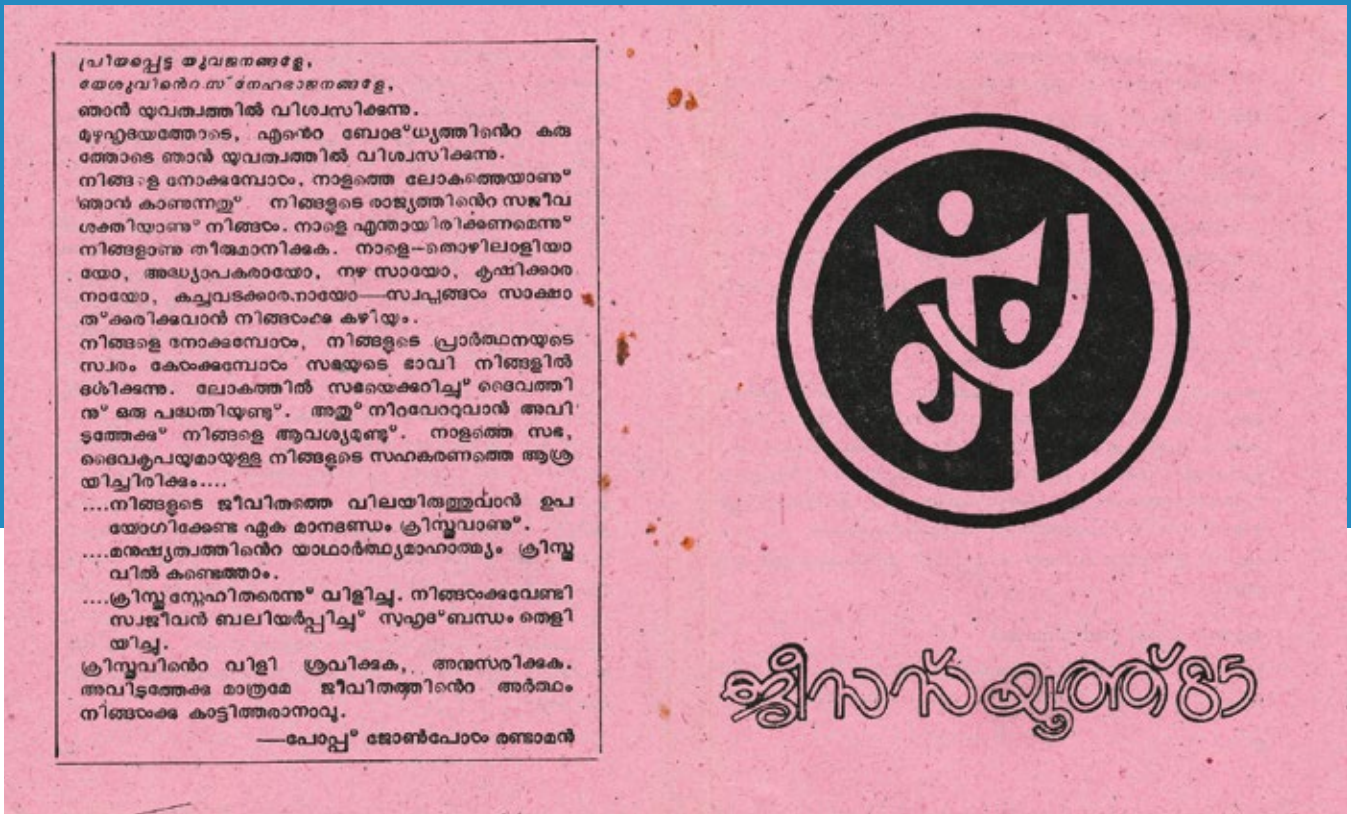 പ്രിയപ്പെട്ട യുവജനങ്ങളേ,
യേശുവിൻെറ സ്നേഹഭാജനങ്ങളേ,
ഞാൻ യുവത്വത്തിൽ വിശ്വസിക്കുന്നു.
മുഴുഹൃദയത്തോടെ, എൻെറ ബോദ്ധ്യത്തിൻെറ കരു
ത്തോടെ ഞാൻ യുവത്വത്തിൽ വിശ്വസിക്കുന്നു.
നിങ്ങളെ നോക്കുമ്പോൾ, നാളത്തെ ലോകത്തെയാണു്
ഞാൻ കാണുന്നതു് നിങ്ങളുടെ രാജ്യത്തിൻെറ സജീവ
ശക്തിയാണു് നിങ്ങൾ. നാളെ എന്തായിരിക്കണമെന്നു്
നിങ്ങളാണു തീരുമാനിക്കുക. നാളെ—തൊഴിലാളിയാ
യോ, അദ്ധ്യാപകരായോ, നഴ്സായോ, കൃഷിക്കാര
നായോ, കച്ചവടക്കാരനായോ—സ്വപ്നങ്ങൾ സാക്ഷാ
ത്ക്കരിക്കുവാൻ നിങ്ങൾക്കു കഴിയും.
നിങ്ങളെ നോക്കുമ്പോൾ, നിങ്ങളുടെ പ്രാർത്ഥനയുടെ
സ്വരം കേൾക്കുമ്പോൾ സഭയുടെ ഭാവി നിങ്ങളിൽ
ദൎശിക്കുന്നു. ലോകത്തിൽ സഭയെക്കുറിച്ചു് ദൈവത്തി
നു് ഒരു പദ്ധതിയുണ്ടു്. അതു് നിറവേററുവാൻ അവി
ടുത്തേക്കു് നിങ്ങളെ ആവശ്യമുണ്ടു്. നാളത്തെ സഭ,
ദൈവകൃപയുമായുള്ള നിങ്ങളുടെ സഹകരണത്തെ ആശ്ര
യിച്ചിരിക്കും....
....നിങ്ങളുടെ ജീവിതത്തെ വിലയിരുത്തുവാൻ ഉപ
യോഗിക്കേണ്ട ഏക മാനദണ്ഡം ക്രിസ്തുവാണു്.
....മനുഷ്യത്വത്തിൻെറ യാഥാർത്ഥ്യമാഹാത്മ്യം ക്രിസ്തു
വിൽ കണ്ടെത്താം.
....ക്രിസ്തു സ്നേഹിതരെന്നു് വിളിച്ചു. നിങ്ങൾക്കുവേണ്ടി
സ്വജീവൻ ബലിയർപ്പിച്ചു് സുഹൃദ്ബന്ധം തെളി
യിച്ചു.
ക്രിസ്തുവിൻെറ വിളി ശ്രവിക്കുക, അനുസരിക്കുക.
അവിടുത്തേക്കു മാത്രമേ ജീവിതത്തിൻെറ അർത്ഥം
നിങ്ങൾക്കു കാട്ടിത്തരാനാവൂ.
—പോപ്പ് ജോൺപോൾ രണ്ടാമൻ
ജീസസ് യൂത്ത് 85